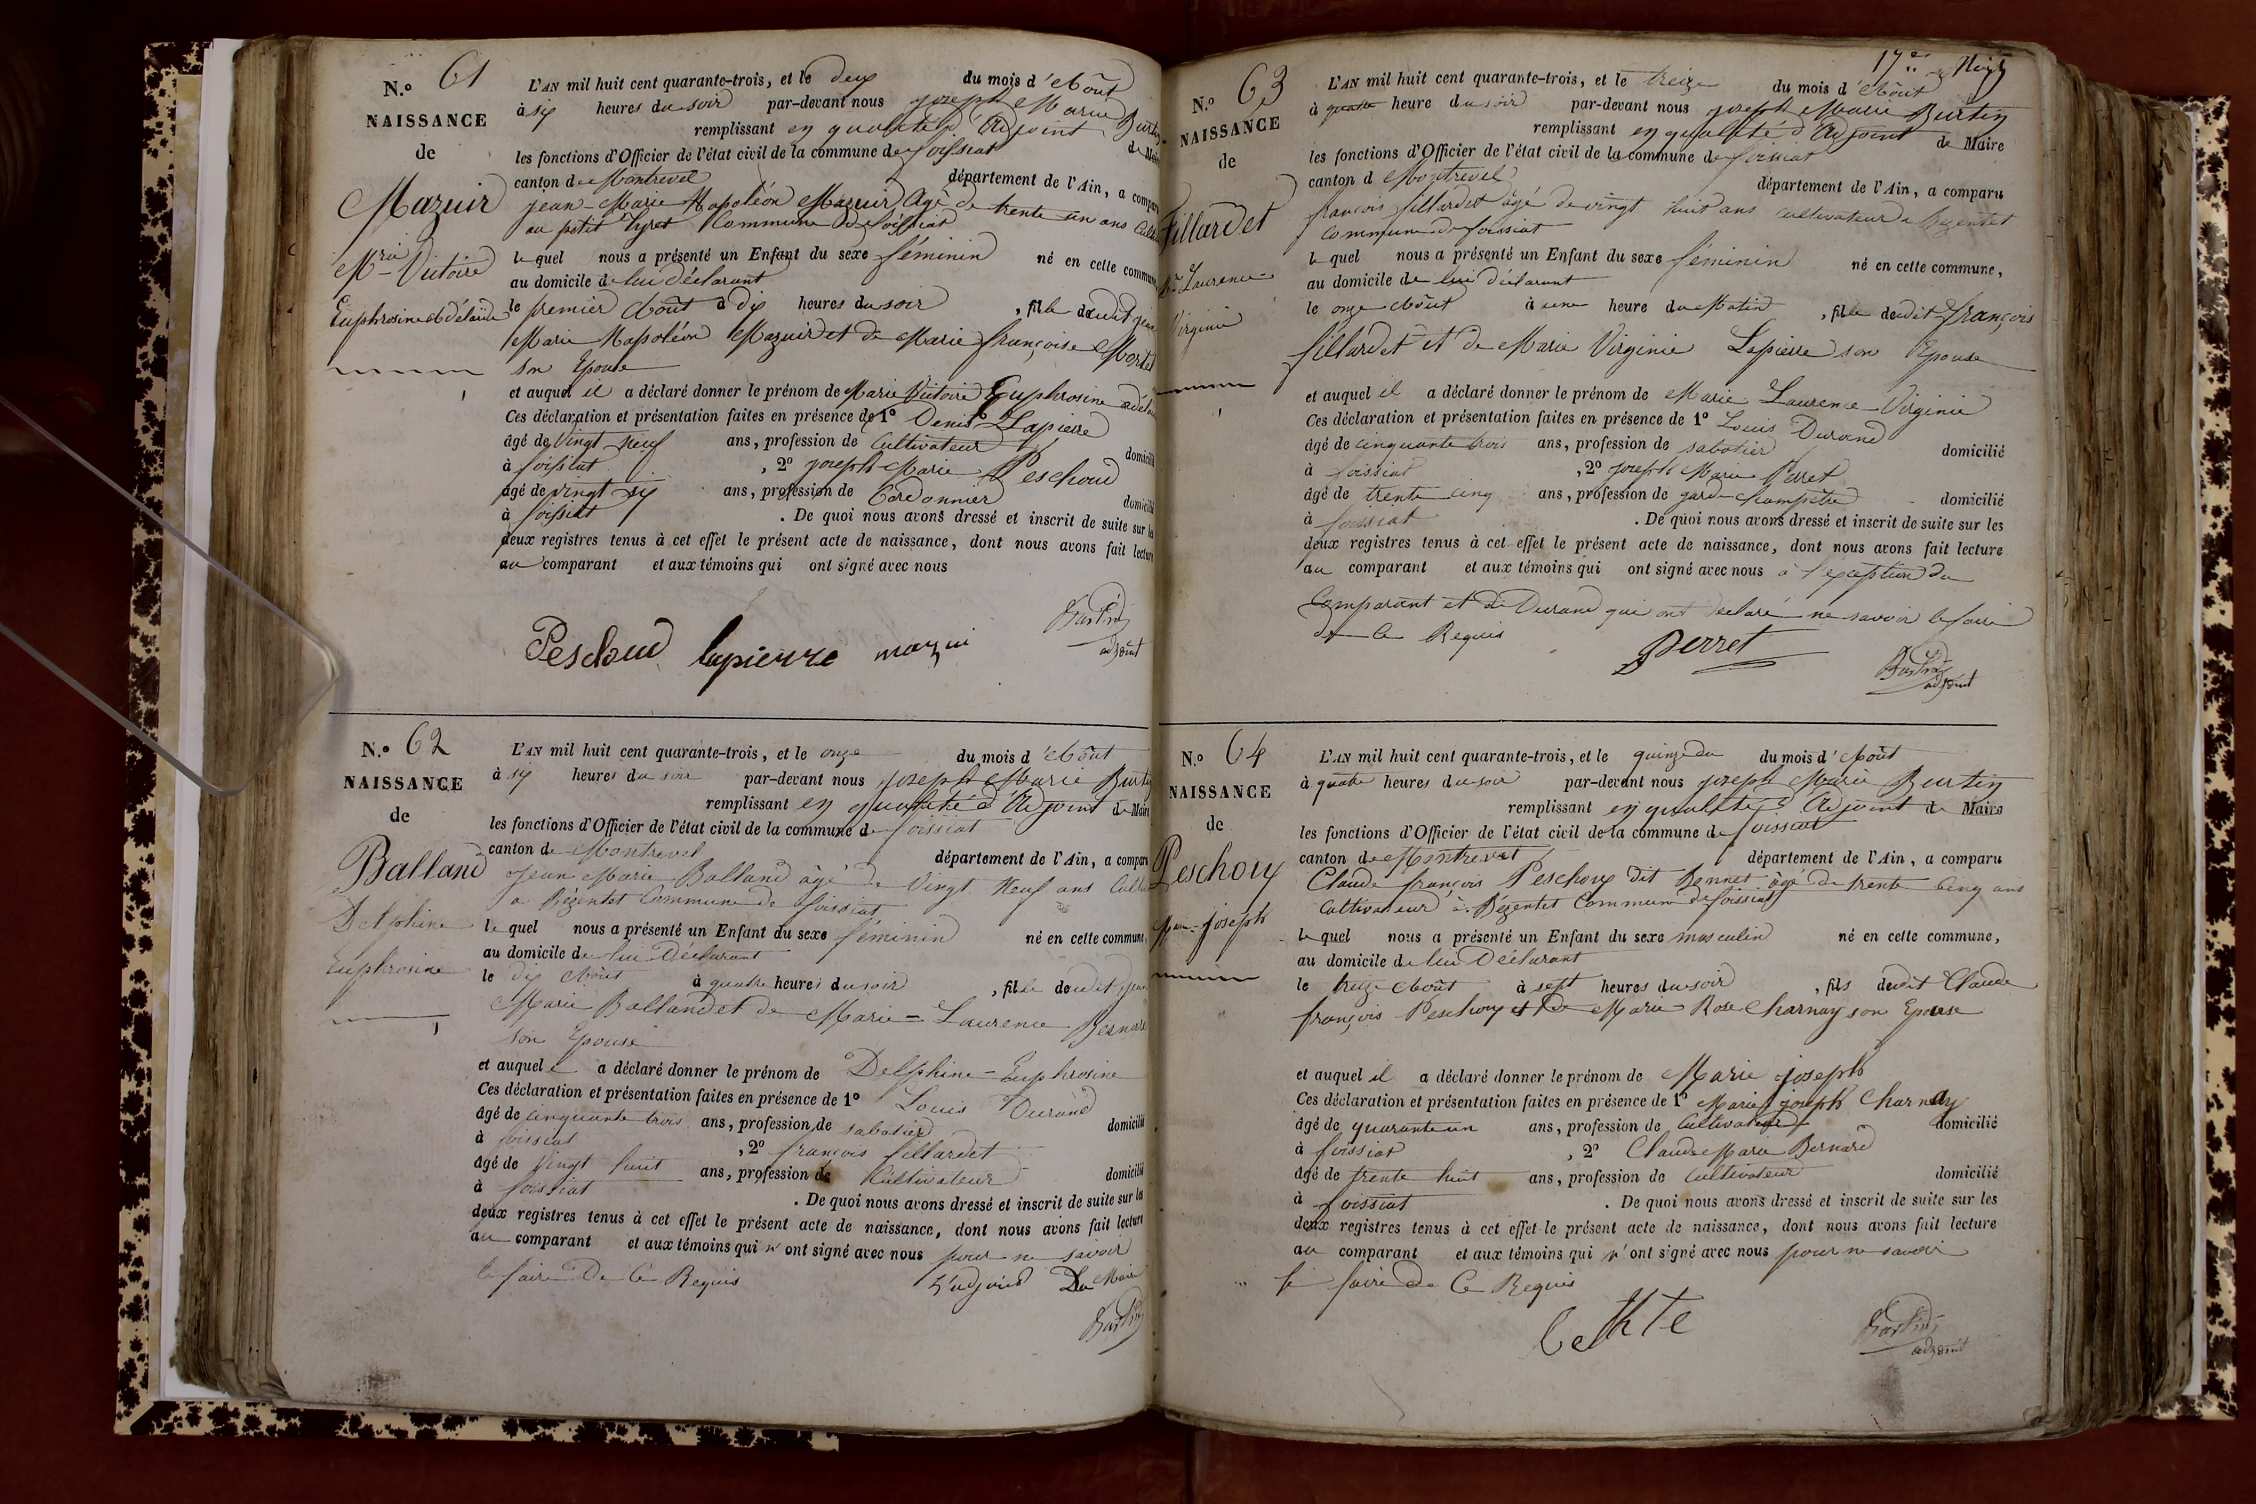 N.o 61
NAISSANCE
de
Mazuir
M.rie Victoire
Euphrosine Adélaïde
L'AN mil huit cent quarante-trois, et le deux du mois d'Août
à six heures du soir par-devant nous joseph Marie Burtin
remplissant en qualité d'Adjoint de Maire
les fonctions d'Officier de l'état civil de la commune de foissiat
canton de Montrevel département de l'Ain, a comparu
jean-Marie Napoléon Mazuir Agé de trente un ans
au petit Commune de foissiat
le quel nous a présenté un Enfant du sexe féminin né en cette commune
au domicile de lui déclarant
le premier Août à dix heures du soir, fille dudit jean
Marie Napoléon Mazuir et de Marie françoise
son Epouse
et auquel il a déclaré donner le prénom de Marie Victoire Euphrosine adélaïde
Ces déclaration et présentation faites en présence de 1o Denis Lapierre
âgé de vingt neuf ans, profession de Cultivateur domicilié
à foissiat, 2o joseph-Marie Peschoud
âgé de vingt six ans, profession de Cordonnier domicilié
à foissiat. De quoi nous avons dressé et inscrit de suite sur les
deux registres tenus à cet effet le présent acte de naissance, dont nous avons fait lecture
au comparant et aux témoins qui ont signé avec nous
Peschoud lapierre mazui Burtin
adjoint
N.o 62
NAISSANCE
de
Balland
Delphine
Euphrosine
L'AN mil huit cent quarante-trois, et le onze du mois d'Août
à six heures du soir par-devant nous joseph Marie Burtin
remplissant en qualité d'Adjoint de Maire
les fonctions d'Officier de l'état civil de la commune de foissiat
canton de Montrevel département de l'Ain, a comparu
Jean Marie Balland âgé de Vingt Neuf ans
a Bézentet Commune de foissiat
le quel nous a présenté un Enfant du sexe féminin né en cette commune
au domicile de lui Déclarant
le dix Août à quatre heures du soir, fille dudit jean
Marie Balland et de Marie-Laurence Bernard
son Epouse
et auquel il a déclaré donner le prénom de Delphine-Euphrosine
Ces déclaration et présentation faites en présence de 1o Louis Durand
âgé de cinquante trois ans, profession de sabotier domicilié
à foissiat, 2o françois fillardet
âgé de Vingt huit ans, profession de Cultivateur domicilié
à foissiat. De quoi nous avons dressé et inscrit de suite sur les
deux registres tenus à cet effet le présent acte de naissance, dont nous avons fait lecture
au comparant et aux témoins qui n'ont signé avec nous pour ne savoir
le faire De Ce Requis L'adjoint Du Maire
Burtin
N.o 63
NAISSANCE
de
Fillardet
Laurence
Virginie
17e
L'AN mil huit cent quarante-trois, et le treize du mois d'Août
à quatre heure du soir par-devant nous joseph Marie Burtin
remplissant en qualité d'Adjoint de Maire
les fonctions d'Officier de l'état civil de la commune de foissiat
canton d Montrevel département de l'Ain, a comparu
françois fillardet âgé de vingt huit ans cultivateur a Bezentet
Commune de foissiat
le quel nous a présenté un Enfant du sexe féminin né en cette commune,
au domicile de lui déclarant
le onze Août à une heure du Matin, fille dudit François
fillardet et de Marie Virginie Lapierre son Epouse
et auquel il a déclaré donner le prénom de Marie Laurence-Virginie
Ces déclaration et présentation faites en présence de 1o Louis Durand
âgé de cinquante trois ans, profession de sabotier domicilié
à foissiat, 2o joseph Marie Perret
âgé de trente cinq ans, profession de garde-champêtre domicilié
à foissiat. De quoi nous avons dressé et inscrit de suite sur les
deux registres tenus à cet effet le présent acte de naissance, dont nous avons fait lecture
au comparant et aux témoins qui ont signé avec nous à l'exception du
Comparant et de Durand qui ont déclaré ne savoir le faire
de Ce Requis
Perret Burtin
adjoint
N.o 64
NAISSANCE
de
Peschoux
joseph
L'AN mil huit cent quarante-trois, et le quinze du du mois d'Août
à quatre heures du soir par-devant nous joseph Marie Burtin
remplissant en qualité d'Adjoint de Maire
les fonctions d'Officier de l'état civil de la commune de foissiat
canton de Montrevel département de l'Ain, a comparu
Claude françois Peschoux dit Bonnet âgé de trente Cinq ans
Cultivateur à Bézentet Commune de foissiat
le quel nous a présenté un Enfant du sexe masculin né en cette commune,
au domicile de lui Déclarant
le treize Août à sept heures du soir, fils dudit Claude
françois Peschoux et de Marie Rose Charnay son Epouse
et auquel il a déclaré donner le prénom de Marie joseph
Ces déclaration et présentation faites en présence de 1o Marie joseph Charnay
âgé de quarante un ans, profession de Cultivateur domicilié
à foissiat, 2o Claude Marie Bernard
âgé de trente huit ans, profession de Cultivateur domicilié
à foissiat. De quoi nous avons dressé et inscrit de suite sur les
deux registres tenus à cet effet le présent acte de naissance, dont nous avons fait lecture
au comparant et aux témoins qui n'ont signé avec nous pour ne savoir
le faire de Ce Requis
Burtin
adjoint